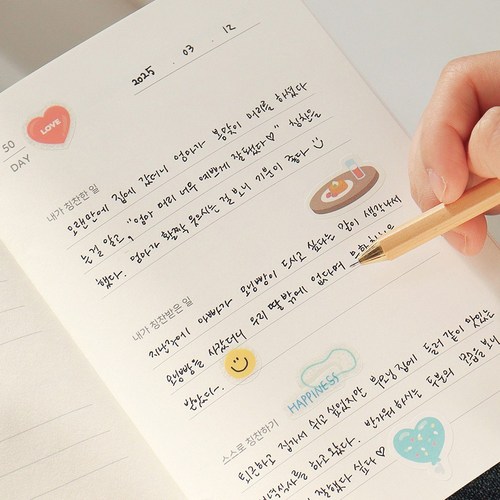 2025 . 03 . 12
50
DAY
LOVE
내가 칭찬한 일
오랜만에 집에 갔더니 엄마가 봄맞이 머리를 하셨다
는걸 알고, "엄마 머리 너무 예쁘게 잘됐다♡" 칭찬을
했다. 엄마가 활짝 웃으시는 걸 보니 기분이 좋다 :)
내가 칭찬받은 일
지난주에 아빠가 모닝빵이 드시고 싶다는 말이 생각나서
모닝빵을 사갔더니 우리 딸밖에 없다며
받았다.
HAPPINESS
스스로 칭찬하기
퇴근하고 집가서 쉬고 싶었지만 부모님 집에 들러 같이 맛있는
하고 왔다. 반가워 하시는 두분의 모습을 보니
잘했다 싶다 ♡